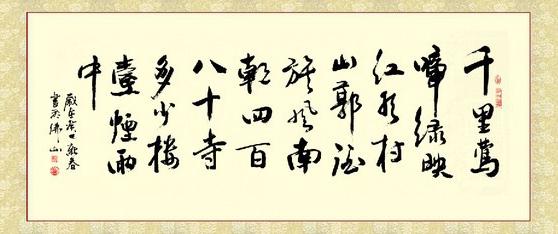 千里鶯
啼綠映
紅水村
山郭酒
旗風南
朝四百
八十寺
多少樓
臺煙雨
中
歲在癸巳新春
書於佛山